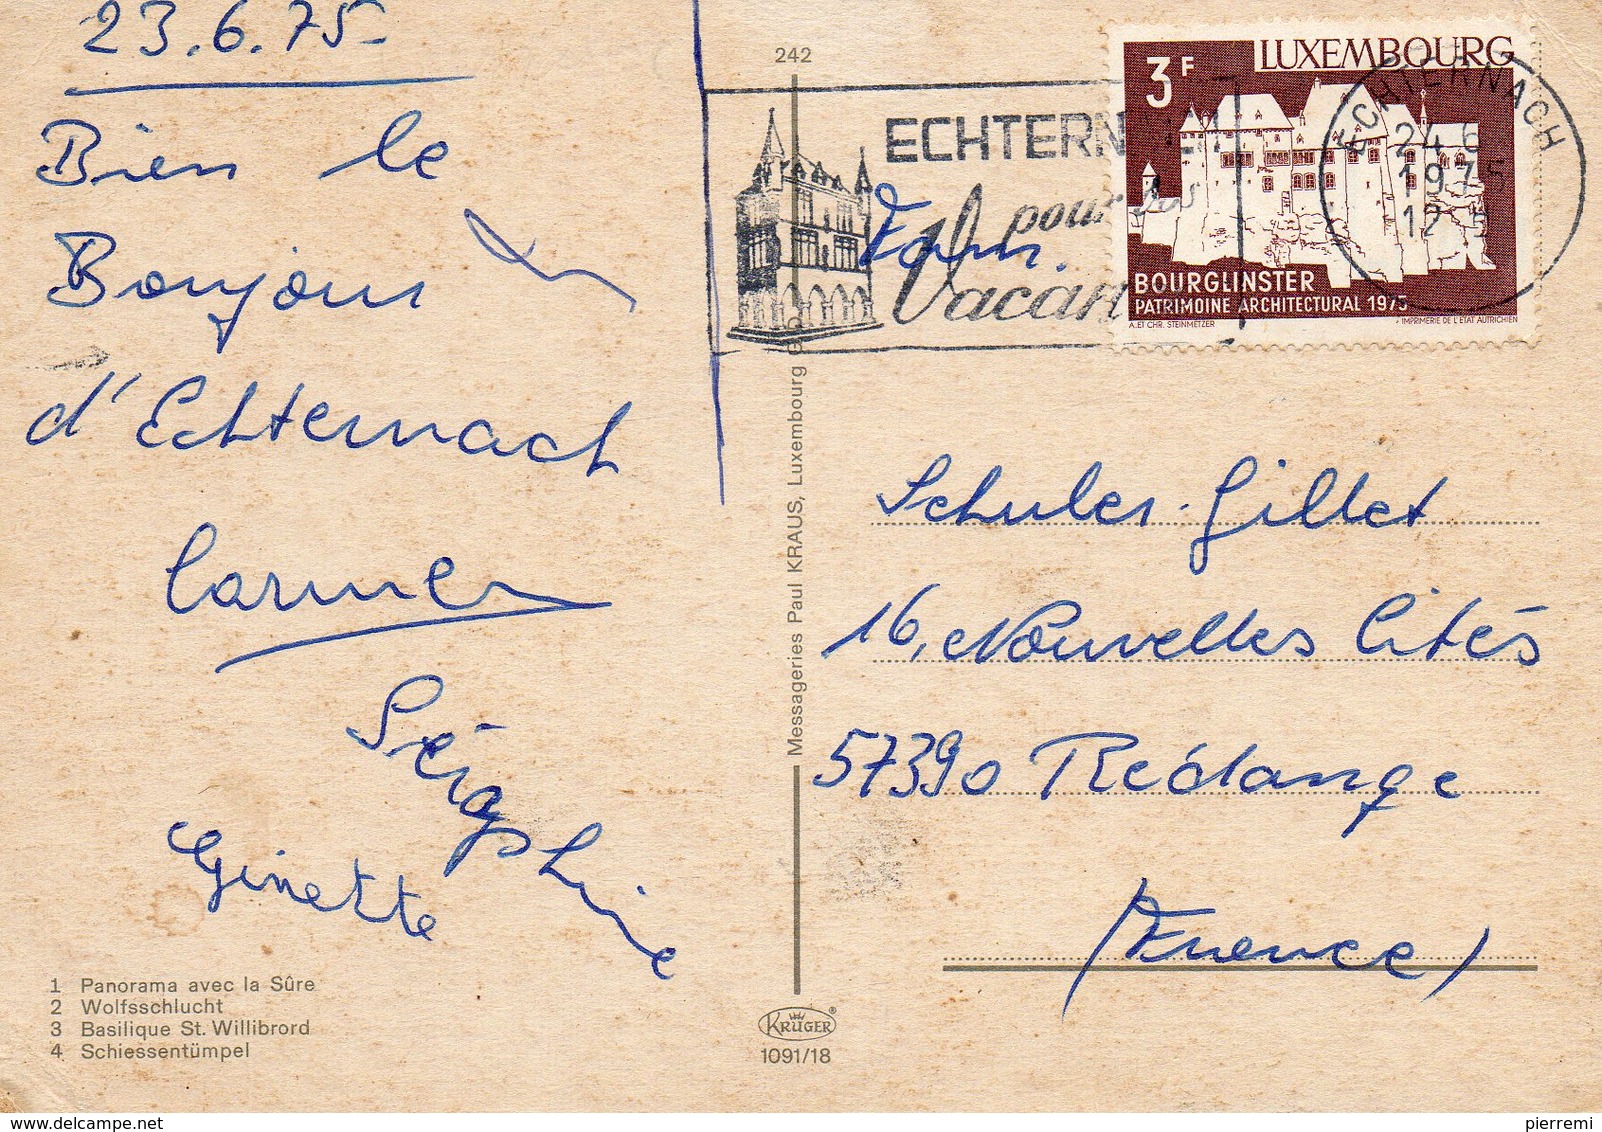 23.6.75
Bien le
Bonjour
d'Echternach
Carmen
Séraphine
Ginette
1 Panorama avec la Sûre
2 Wolfsschlucht
3 Basilique St. Willibrord
4 Schiessentümpel
242
Messageries Paul KRAUS, Luxembourg
KRÜGER
®
1091/18
ECHTERNACH
pour vos
Vacan
3F
LUXEMBOURG
BOURGLINSTER
PATRIMOINE ARCHITECTURAL 1975
A. ET CHR. STEINMETZER
IMPRIMERIE DE L'ETAT AUTRICHIEN
ECHTERNACH
24 6
1975
12 H
Fam.
Schuler-Gillet
16, Nouvelles Cités
57390 Rédange
(France)
delcampe.net
pierremi